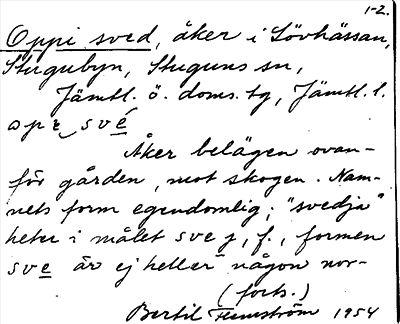 1-2.
Oppi sved, åker i Lövhässan,
Stugubyn, Stuguns sn,
Jämtl. ö. doms. tg, Jämtl. l.
opɛ své
Åker belägen ovan-
för gården, mot skogen. Nam-
nets form egendomlig; "svedja"
heter i målet sveȷ, f., formen
sve är ej heller någon nor-
(forts.)
Bertil Flemström 1954